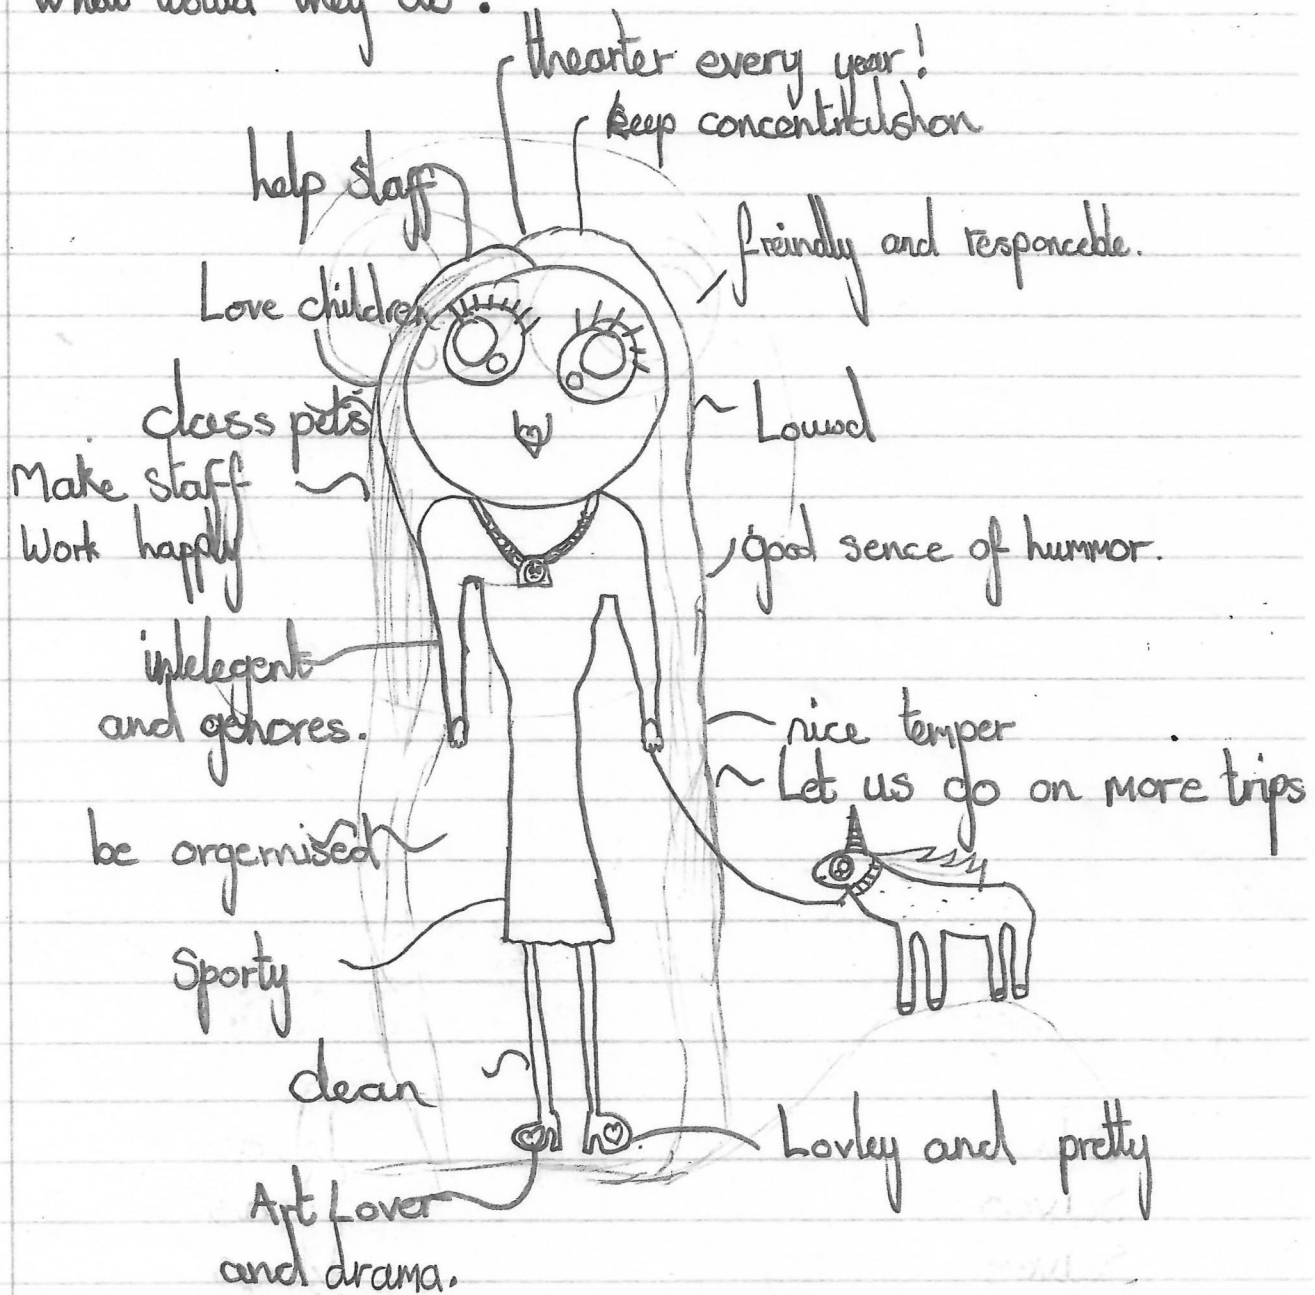 what would they do?
thearter every year!
keep concentratshon
help staff
freindly and responceble.
Love children
class pets
Louwd
Make staff
Work happly
good sence of hummor.
intelegent
and genores.
nice temper
Let us go on more trips
be orgernised
Sporty
clean
Lovley and pretty
Art Lover
and drama.